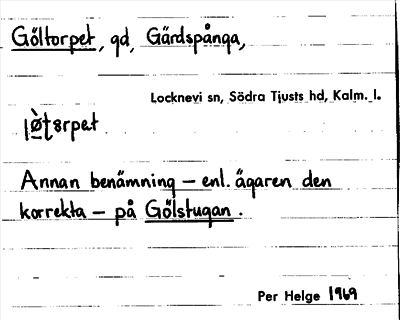 Göltorpet, gd, Gärdspånga,
Locknevi sn, Södra Tjusts hd, Kalm. l.
Annan benämning – enl. ägaren den
korrekta – på Gölstugan.
Per Helge 1969